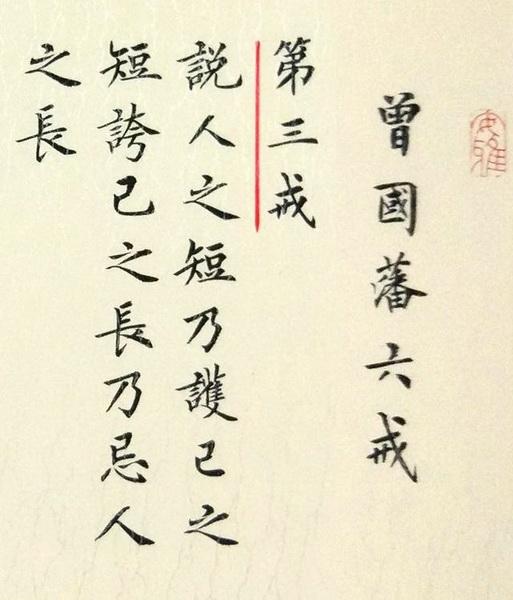 曾國藩六戒
第三戒
説人之短乃護己之
短誇己之長乃忌人
之長